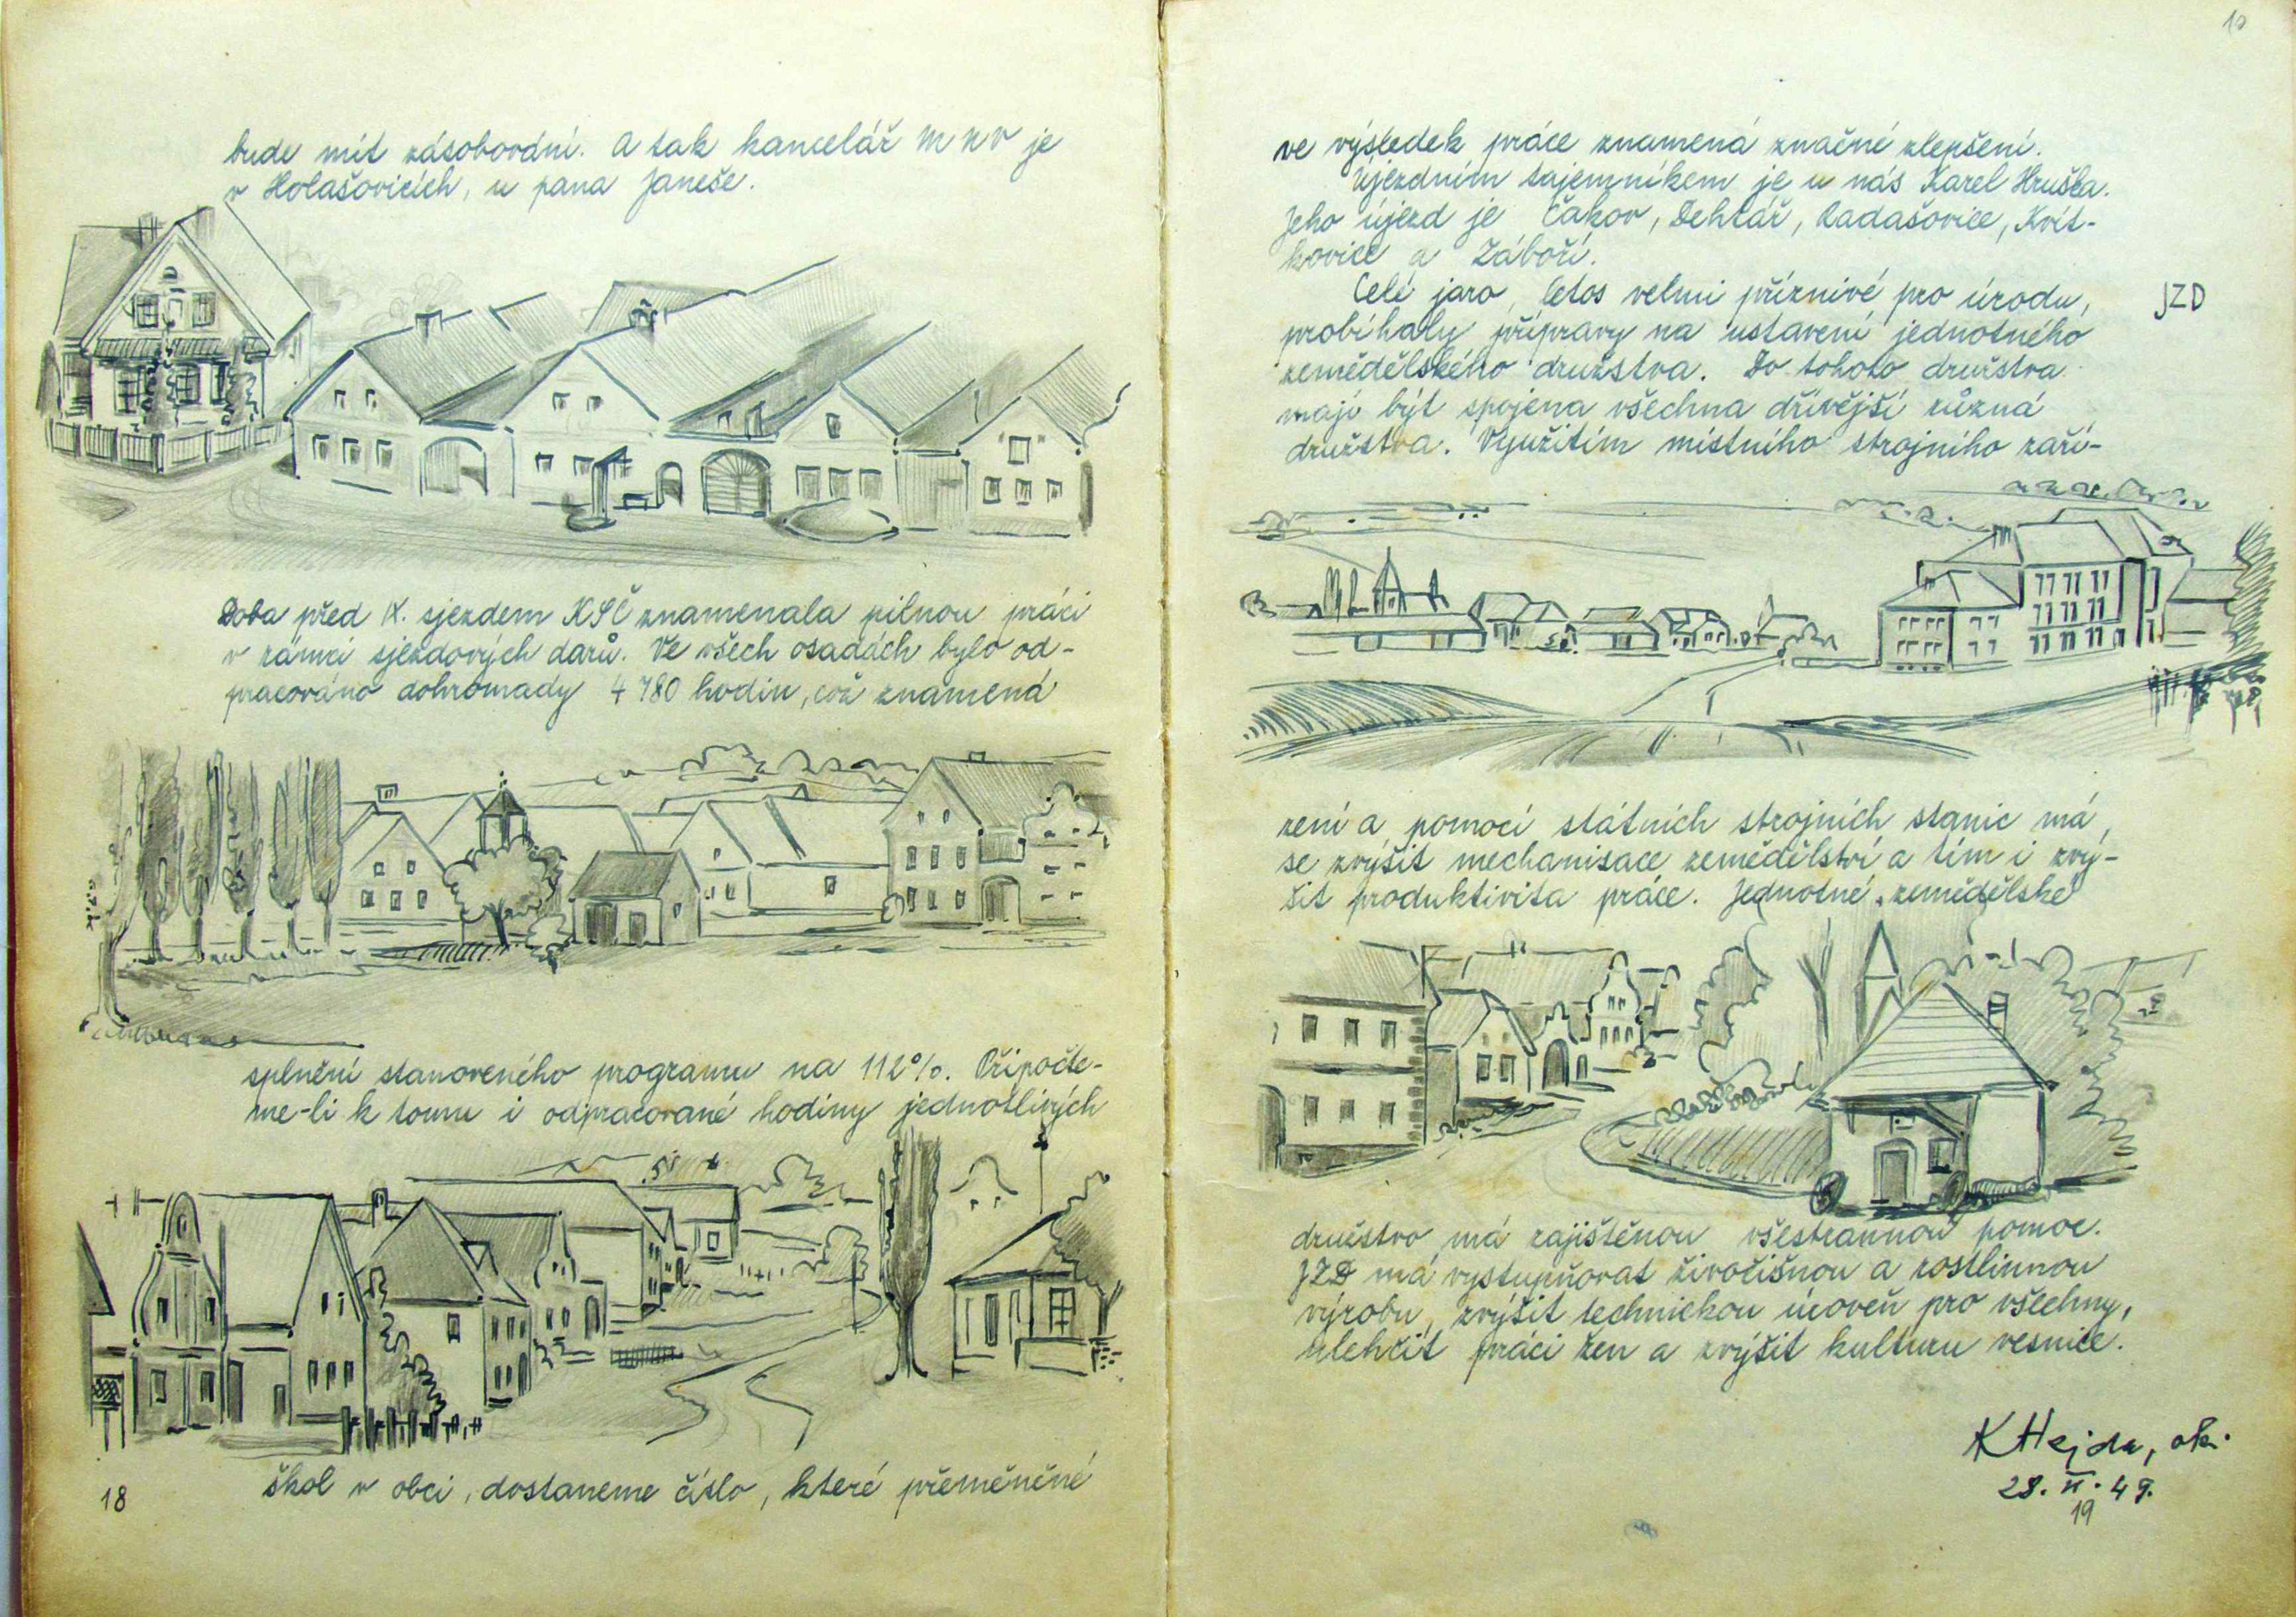 bude mít zásobování. A tak kancelář M N V je
v Holašovicích, u pana Janeše.
Doba před IX. sjezdem KSČ znamenala pilnou práci
v rámci sjezdových darů. Ve všech osadách bylo od-
pracováno dohromady 4 780 hodin, což znamená
splnění stanoveného programu na 112%. Připočte-
me-li k tomu i odpracované hodiny jednotlivých
škol v obci, dostaneme číslo, které přeměněné
18
10
ve výsledek práce znamená značné zlepšení.
Újezdním tajemníkem je u nás Karel Hruška.
Jeho újezd je Čakov, Dehtář, Radašovice, Kvít-
kovice a Záboří.
Celé jaro, letos velmi příznivé pro úrodu,
JZD
probíhaly přípravy na ustavení jednotného
zemědělského družstva. Do tohoto družstva
mají být spojena všechna dřívější různá
družstva. Využitím místního strojního zaří-
zení a pomocí státních strojních stanic má
se zvýšit mechanisace zemědělství a tím i zvý-
šit produktivita práce. Jednotné zemědělské
družstvo má zajištěnou všestrannou pomoc.
JZD má vystupňovat živočišnou a rostlinnou
výrobu, zvýšit technickou úroveň pro všechny,
ulehčit práci žen a zvýšit kulturu vesnice.
KHejda, ok.
28. VI. 49.
19